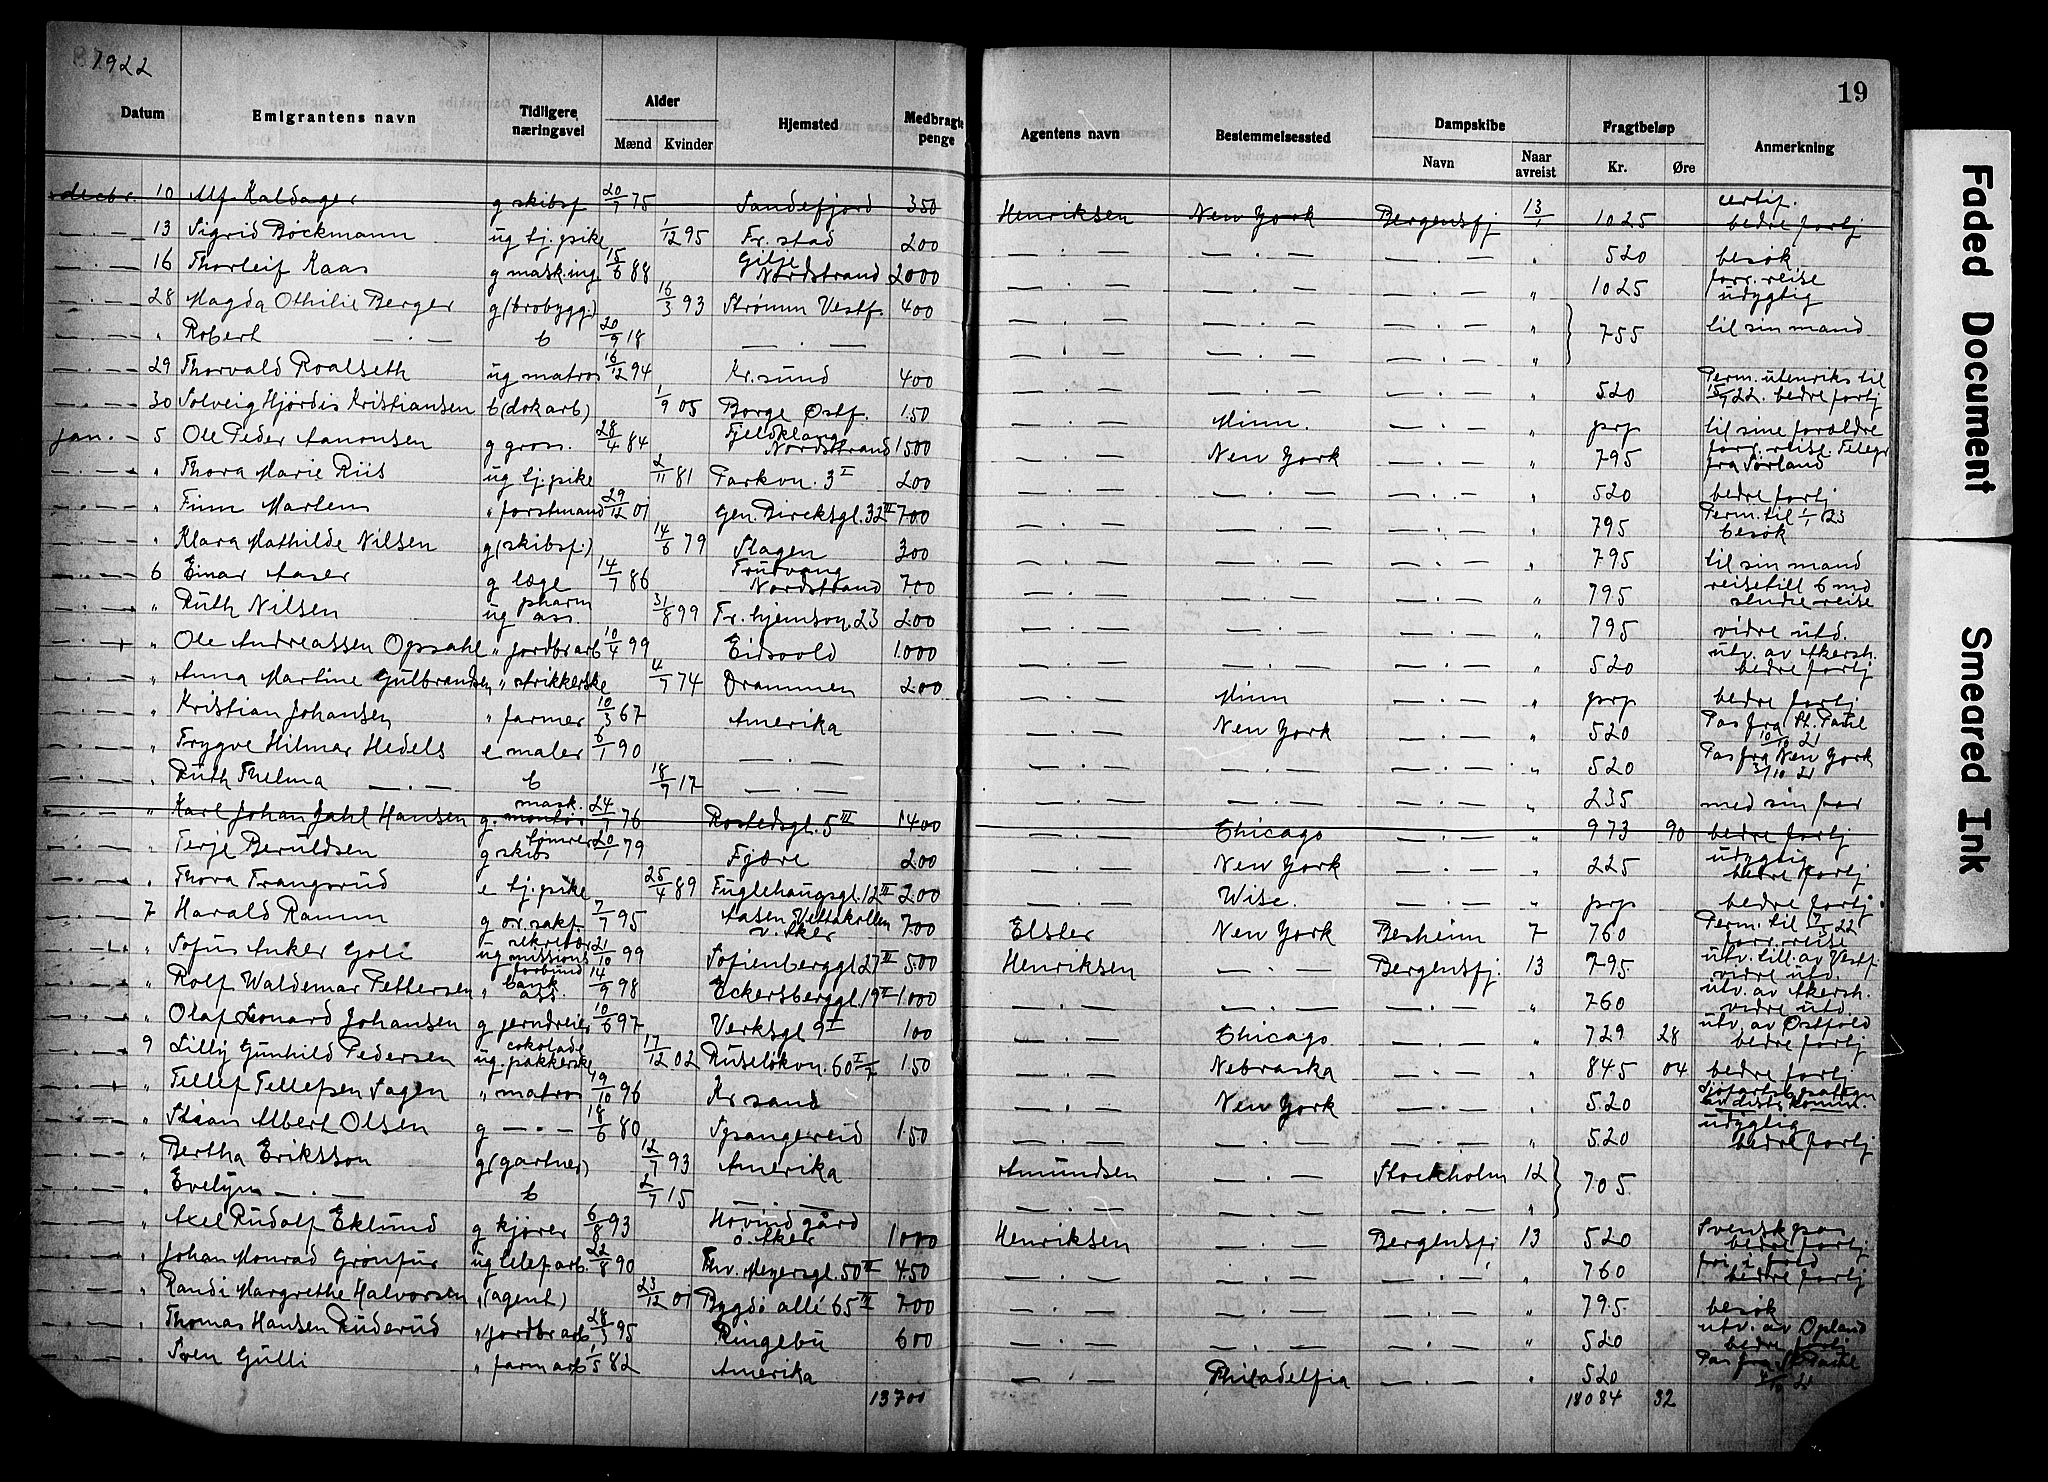 1922
19
Datum Emigrantens navn Tidligere næringsvei Alder Mænd Kvinder Hjemsted Medbragte penge Agentens navn Bestemmelsessted Dampskibe Navn Naar avreist Fragtbeløp Kr. Øre Anmerkning
decbr. 10 Alf Kaldager g skibsf. 20/7 75 Sandefjord 350 Henriksen New York Bergensfj 13/1 1025 certif. bedre fortj
— · — 13 Sigrid Bøckmann ug tj. pike 1/12 95 Fr. stad 200 — · — — · — — · — " 520 besøk
— · — 16 Thorleif Kaas g mask.ing 15/6 88 Gilje Nordstrand 2000 — · — — · — — · — " 1025 forr. reise udygtig
— · — 28 Magda Othilie Berger g (brobygg.) 16/3 93 Strømm Vestf. 400 — · — — · — — · — " 755 til sin mand
" Robert — · — b 20/9 18 — · — — · — — · — — · — "
— · — 29 Thorvald Roalseth ug matros 16/12 94 Kr. sund 400 — · — — · — — · — " 520 Perm. utenriks til 15/7 22. bedre fortj
— · — 30 Solveig Hjördis Kristiansen b (dokarb) 1/9 05 Borge Østf. 150 — · — Minn. — · — " prp til sine forældre
jan. — 5 Ole Peder Aanonsen g gross. 28/4 84 Nordstrand 1500 — · — New York — · — " 795 forr. reise. Telegr fra Sørland
" Thora Marie Riis ug tj. pike 2/11 81 Parkvn. 3 I 200 — · — — · — — · — " 520 bedre fortj
" Finn Martens " forstmand 29/12 01 Gen. Bircksgt. 32 II 700 — · — — · — — · — " 795 Perm. til 1/1 23 besøk
" Klara Mathilde Nilsen g (skibsf.) 14/6 79 Slagen 300 — · — — · — — · — " 795 til sin mand
— · — 6 Einar Aaser g læge 14/7 86 Trudvang Nordstrand 700 — · — — · — — · — " 795 reisetill 6 md studiereise
" Ruth Nilsen ug pharm ass. 31/8 99 Fr. hjemson 23 200 — · — — · — — · — " 795 vidre utd.
" Ole Andreassen Opsahl " jordbrarb 10/4 99 Eidsvold 1000 — · — — · — — · — " 520 utv. av Akersh. bedre fortj
" Anna Martine Gulbrandsen " strikkerske 4/7 74 Drammen 200 — · — Minn — · — " prp bedre fortj
" Kristian Johansen " farmer 10/3 67 Amerika — · — New York — · — " 520 Pas fra St. Paul 10/10 21
" Trygve Hilmar Hedels e maler 6/1 90 — · — — · — — · — — · — " 520 Pas fra New York 3/10 21
" Ruth Thelma — · — b 18/7 17 — · — — · — — · — — · — " 235 med sin far
" Karl Johan Jahl Hansen g. mask. montør 24/7 76 Rostedsgt. 5 III 1400 — · — Chicago — · — " 973 90 bedre fortj
" Terje Beruldsen g skibstømrer 20/1 79 Fjære 200 — · — New York — · — " 225 udygtig bedre fortj
" Thora Trangsrud e tj. pike 25/4 89 Fuglehaugsgt. 12 II 200 — · — Wisc. — · — " prp bedre fortj.
— · — 7 Harald Ramm g or. sakf. 7/7 95 Aasen Vettakollen v. Aker 700 Elster New York Besheim 7 760 Perm. til forr. reise
" Sofus Anker Goli ug sekretær missionsforbund 21/10 99 Sofienberggt 27 II 500 Henriksen — · — Bergensfj. 13 795 utv. till. av Vestf. vidre utd.
" Rolf Waldemar Pettersen " bank ass. 14/9 98 Eckersberggt. 19 I 1000 — · — — · — — · — " 760 utv. av Akersh. vidre utd.
" Olaf Leonard Johansen g jerndreier 10/6 97 Verksgt 9 I 100 — · — Chicago — · — " 729 28 utv. av Østfold bedre fortj
— · — 9 Lilly Gunhild Pedersen ug. cokolade pakkerske 17/12 02 Ruseløkvn. 60 150 — · — Nebraska — · — " 845 04 bedre fortj
" Tellef Tellefsen Sagen " matros 19/10 96 Kr. sand — · — New York — · — " 520
" Stian Albert Olsen g — · — 18/6 80 Spangereid 150 — · — — · — — · — " 520 udygtig bedre fortj
" Bertha Eriksson g (gartner) 12/7 93 Amerika Amundsen — · — Stockholm 12 705
" Evelyn — · — b 2/7 15 — · — — · — — · — — · — "
" Axel Rudolf Eklund g kjører 6/8 93 Hovind gård ö. Aker 1000 Henriksen — · — Bergensfj 13 520 Svensk pas bedre fortj
" Johan Monrad Grønfur ug telef. arb. 22/8 90 Thv. Meyersgt. 50 II 450 — · — — · — — · — " 760 bedre fortj
" Randi Margrethe Halvorsen " (agent) 23/12 01 Bygdø allé 65 III 700 — · — — · — — · — " 795 besøk
" Thomas Hansen Ruderud " jordbrarb 28/3 95 Ringebu 600 — · — — · — — · — " 520 utv. av Opland bedre fortj
" Sven Gulli " farmarb 1/5 82 Amerika — · — Philadelfia — · — " 520 Pas fra St Paul
13700 18084 32
Faded Document
Smeared Ink